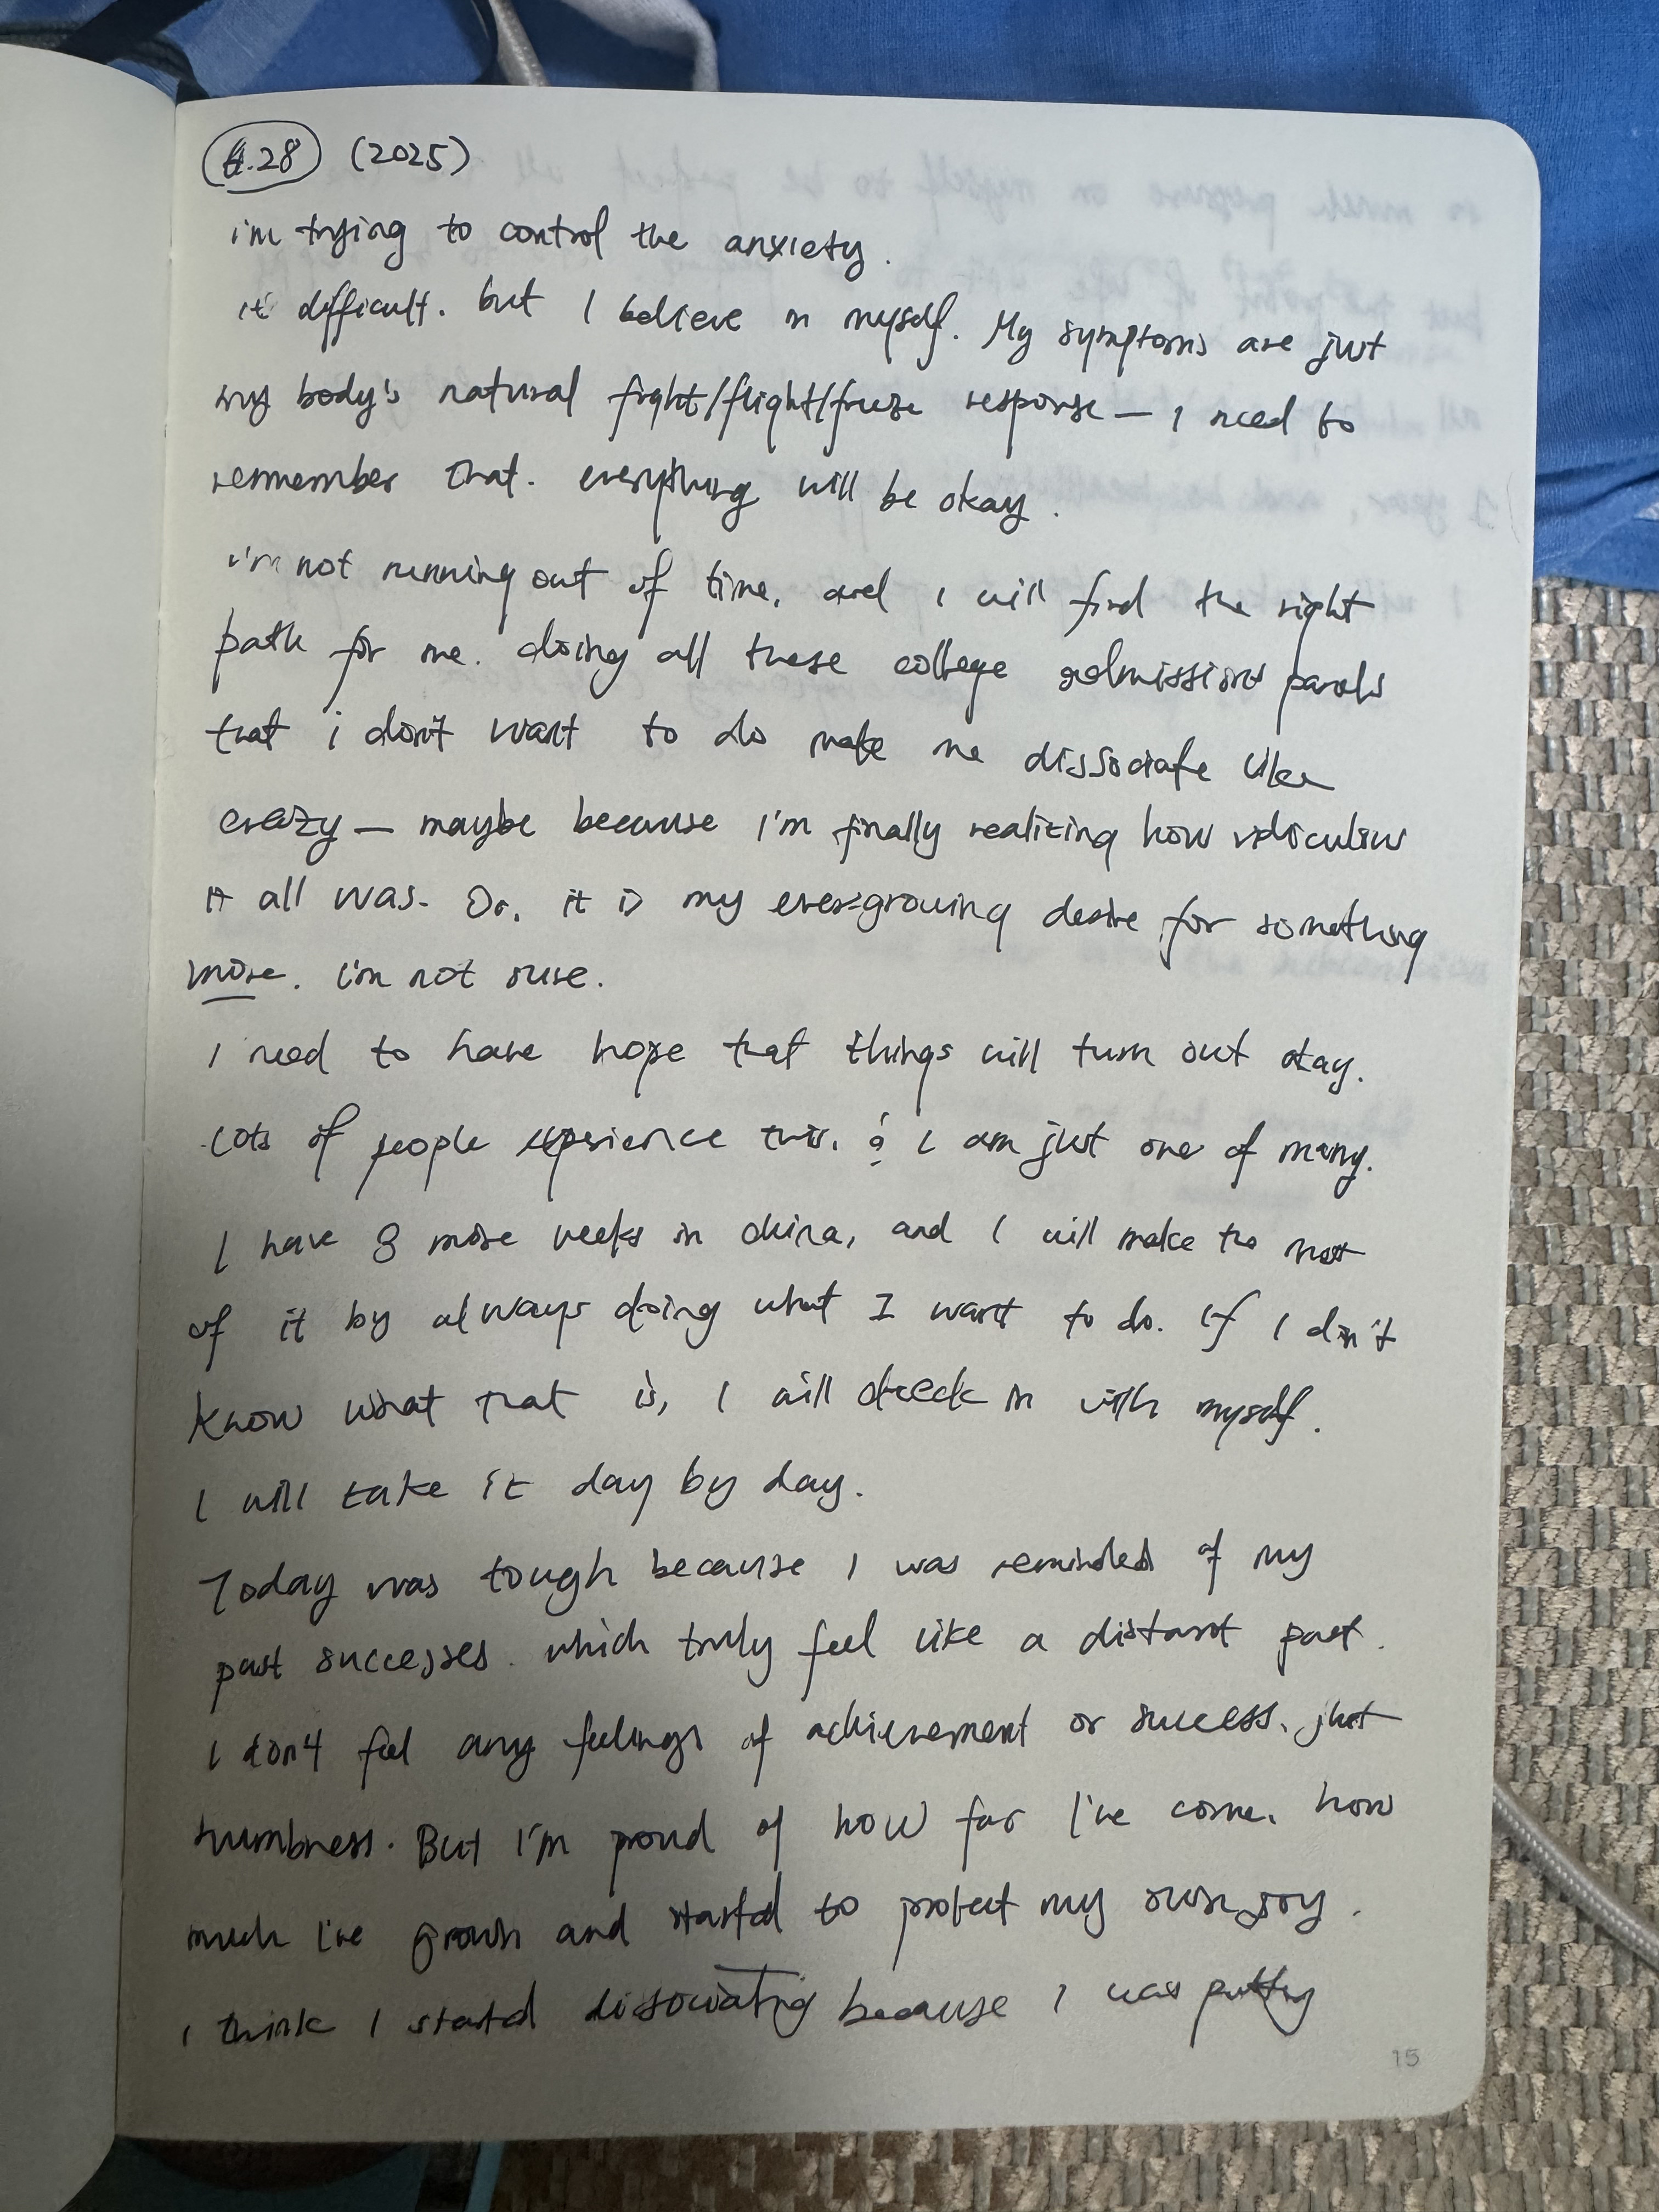 6.28 (2025)
i'm trying to control the anxiety.
it's difficult. but I believe in myself. My symptoms are just
my body's natural fight/flight/freeze response — I need to
remember that. everything will be okay.
i'm not running out of time, and i will find the right
path for me. doing all these college admissions panels
that i don't want to do make me dissociate like
crazy — maybe because I'm finally realizing how ridiculous
it all was. Or, it is my ever-growing desire for something
more. I'm not sure.
I need to have hope that things will turn out okay.
Lots of people experience this, & I am just one of many.
I have 8 more weeks in china, and I will make the most
of it by always doing what I want to do. If I don't
know what that is, I will check in with myself.
I will take it day by day.
Today was tough because I was reminded of my
past successes. which truly feel like a distant past.
I don't feel any feelings of achievement or success, just
numbness. But I'm proud of how far I've come, how
much I've grown and started to protect my own joy.
I think I started dissociating because I was putting
15